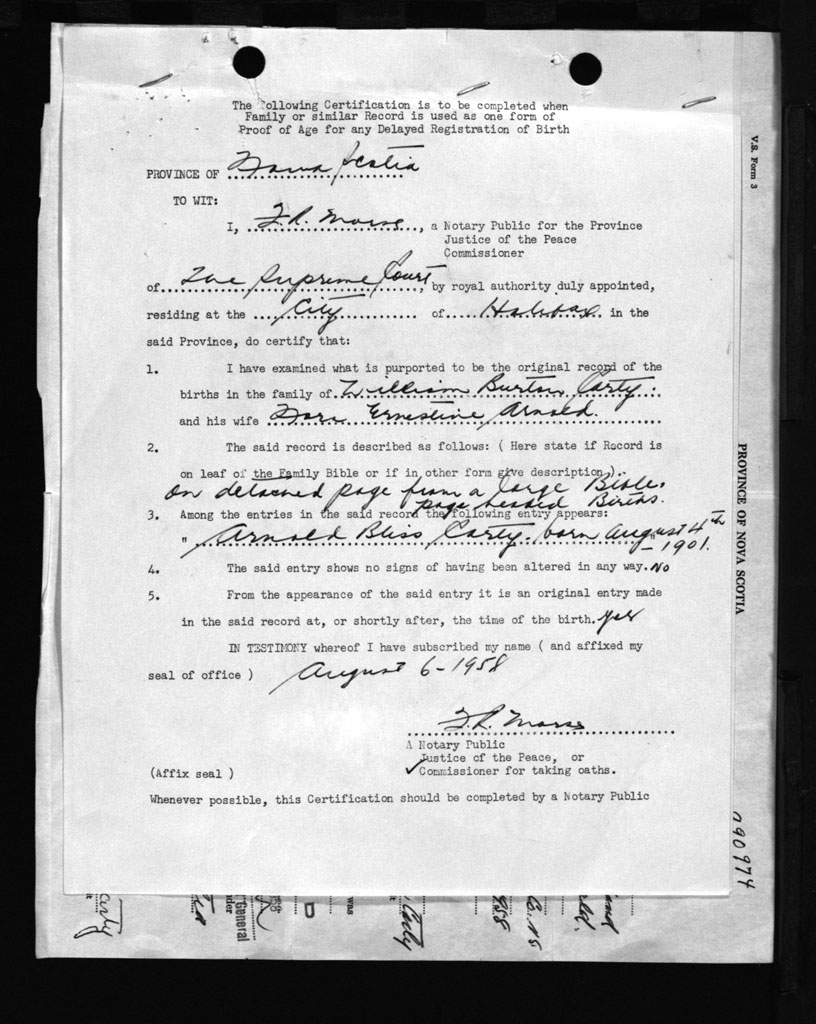 The following Certification is to be completed when
Family or similar Record is used as one form of
Proof of Age for any Delayed Registration of Birth
PROVINCE OF Nova Scotia
TO WIT:
I, F.R. Morse, a Notary Public for the Province
Justice of the Peace
Commissioner
of The Supreme Court, by royal authority duly appointed,
residing at the City of Halifax in the
said Province, do certify that:
1. I have examined what is purported to be the original record of the
births in the family of William Burton Carty
and his wife Nora Ernestine Arnold.
2. The said record is described as follows: ( Here state if Record is
on leaf of the Family Bible or if in other form give description ).
On detached page from a large Bible.
page headed Births.
3. Among the entries in the said record the following entry appears:
" Arnold Bliss Carty. born August 4th "
- 1901.
4. The said entry shows no signs of having been altered in any way. No
5. From the appearance of the said entry it is an original entry made
in the said record at, or shortly after, the time of the birth. Yes
IN TESTIMONY whereof I have subscribed my name ( and affixed my
seal of office ) August 6 - 1958
F.R. Morse
A Notary Public
Justice of the Peace, or
✓Commissioner for taking oaths.
(Affix seal )
Whenever possible, this Certification should be completed by a Notary Public
V.S. Form 3
PROVINCE OF NOVA SCOTIA
090974
arty
General
was
Carty
958